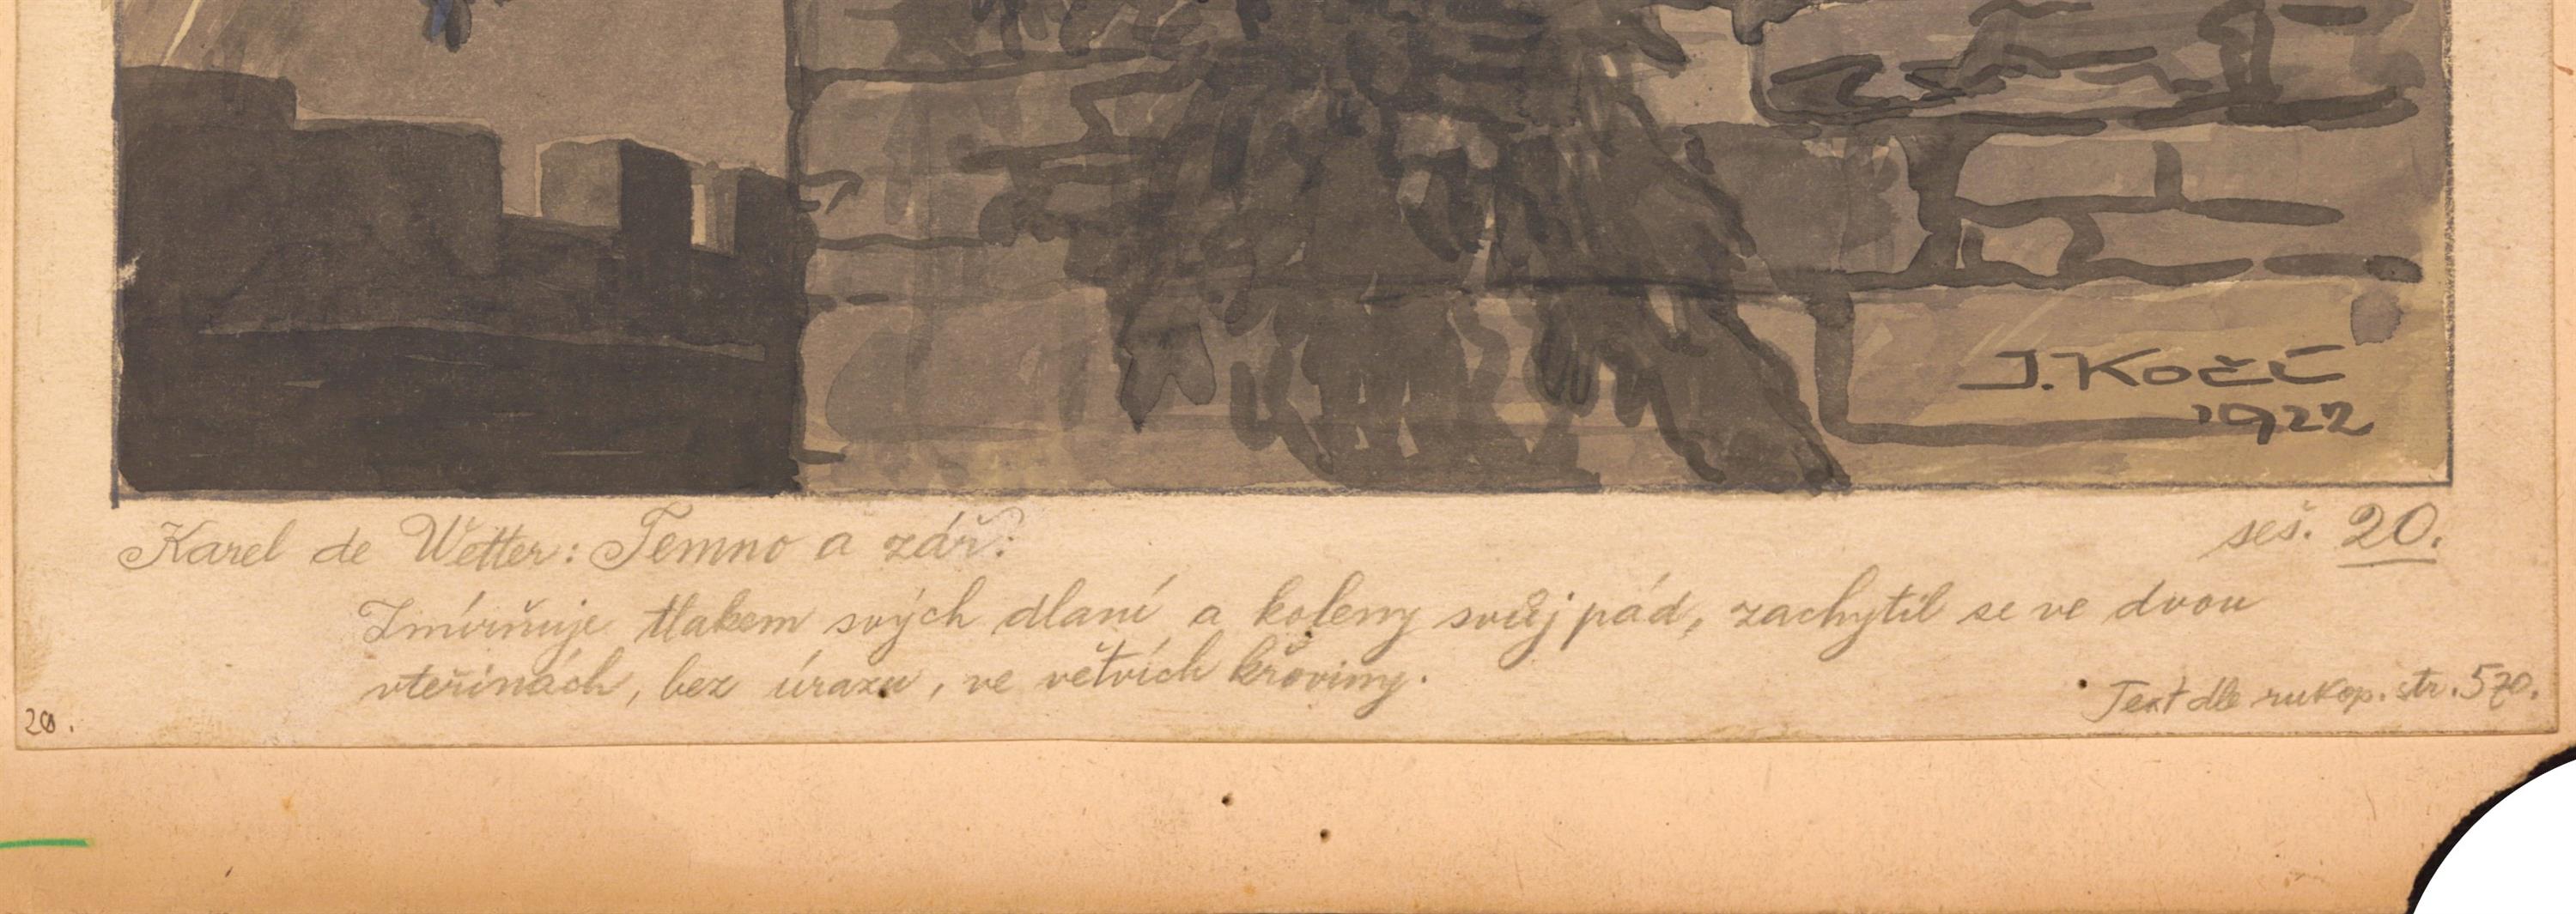 J. Kočí
1922
Karel de Wetter: Temno a zář.
seš. 20.
Zmírňuje tlakem svých dlaní a koleny svůj pád, zachytil se ve dvou
vteřinách, bez úrazu, ve větvích křoviny.
Text dle rukop. str. 570.
20.